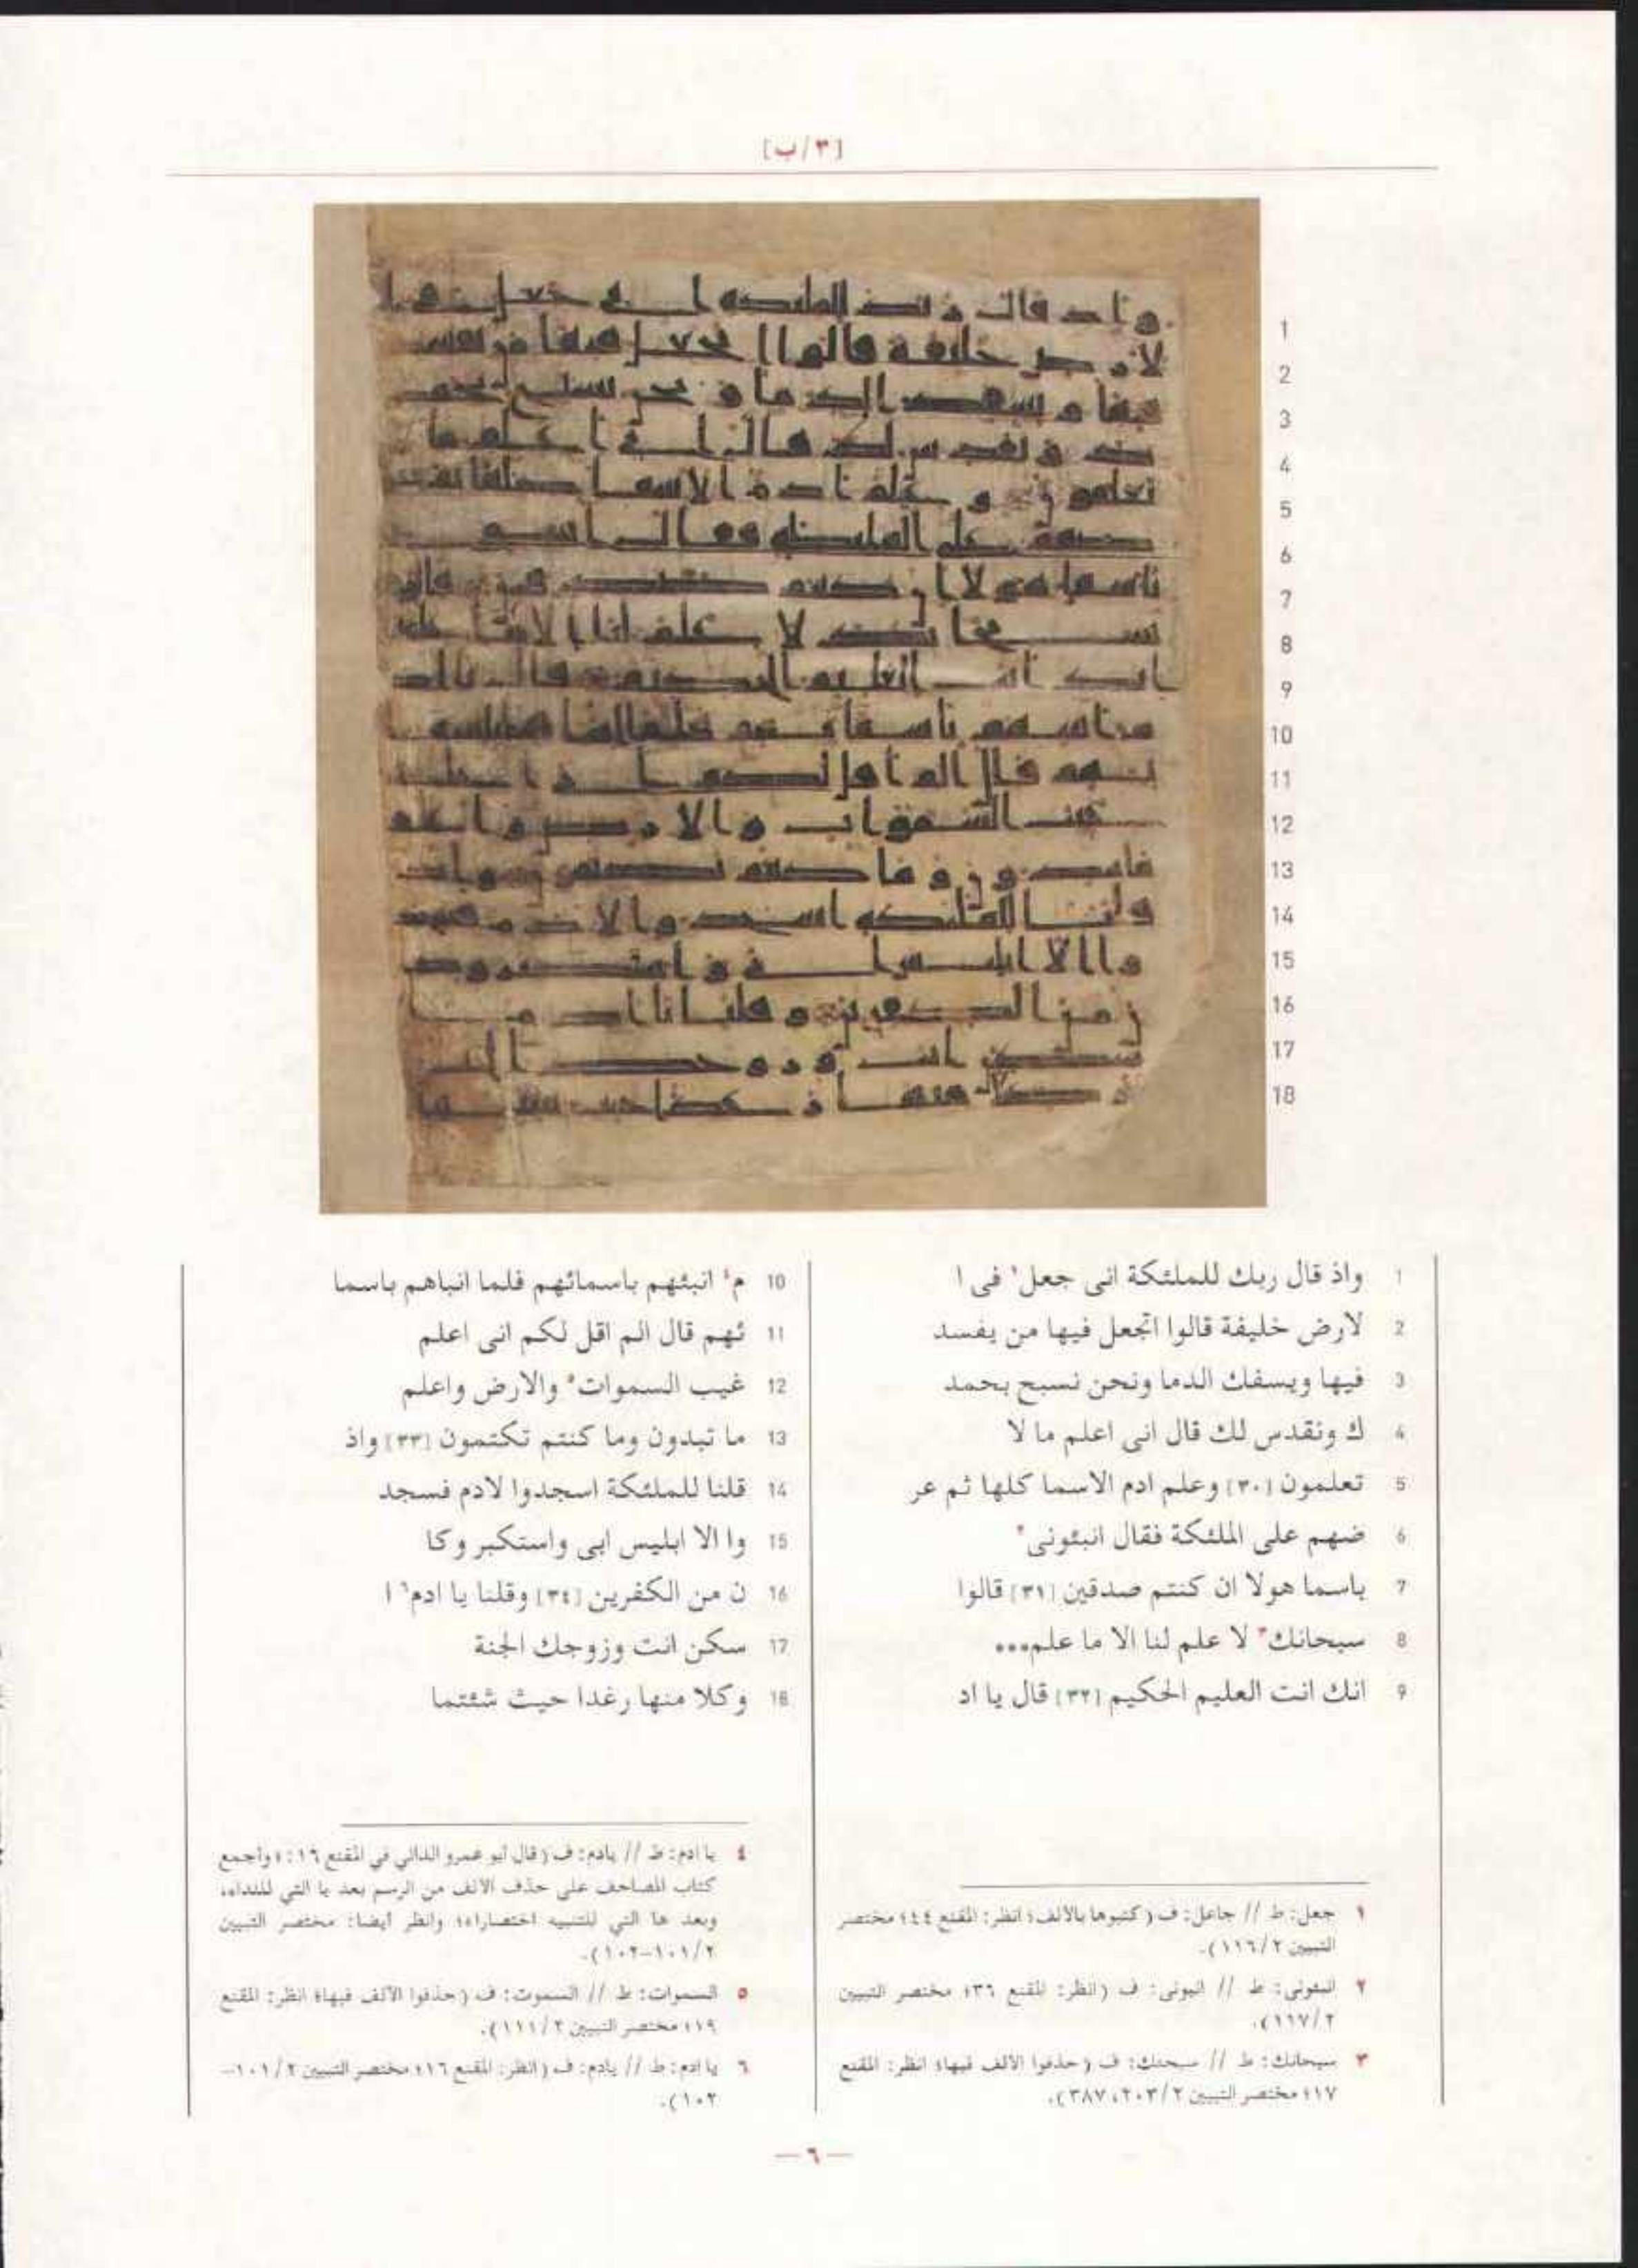 [٣/ب]
1 واذ قال ربك للملئكة انى جعل١ فى ا
2 لارض خليفة قالوا اتجعل فيها من يفسد
3 فيها ويسفك الدما ونحن نسبح بحمد
4 ك ونقدس لك قال انى اعلم ما لا
5 تعلمون [٣٠] وعلم ادم الاسما كلها ثم عر
6 ضهم على الملئكة فقال انبئونى٢
7 باسما هولا ان كنتم صدقين [٣١] قالوا
8 سبحانك٣ لا علم لنا الا ما علم•••
9 انك انت العليم الحكيم [٣٢] قال يا اد
10 م٤ انبئهم باسمائهم فلما انباهم باسما
11 ئهم قال الم اقل لكم انى اعلم
12 غيب السموات٥ والارض واعلم
13 ما تبدون وما كنتم تكتمون [٣٣] واذ
14 قلنا للملئكة اسجدوا لادم فسجد
15 وا الا ابليس ابى واستكبر وكا
16 ن من الكفرين [٣٤] وقلنا يا ادم٦ ا
17 سكن انت وزوجك الجنة
18 وكلا منها رغدا حيث شئتما
١ جعل: ط // جاعل: ف (كتبوها بالالف؛ انظر: المقنع ٤٤؛ مختصر
التبيين ٢/١١٦).
٢ انبئونى: ط // انبونى: ف (انظر: المقنع ٣٦؛ مختصر التبيين
٢/١١٧).
٣ سبحانك: ط // سبحنك: ف (حذفوا الالف فيها؛ انظر: المقنع
١٧؛ مختصر التبيين ٢/٢٠٣، ٣٨٧).
٤ يا ادم: ط // يادم: ف (قال أبو عمرو الداني في المقنع ١٦: «وأجمع
كتاب المصاحف على حذف الالف من الرسم بعد يا التي للنداء،
وبعد ها التي للتنبيه اختصارا»؛ وانظر أيضا: مختصر التبيين
٢/١٠١-١٠٢).
٥ السموات: ط // السموت: ف (حذفوا الألف فيها؛ انظر: المقنع
١٩؛ مختصر التبيين ٢/١١١).
٦ يا ادم: ط // يادم: ف (انظر: المقنع ١٦؛ مختصر التبيين ٢/١٠١-
١٠٢).
— ٦ —